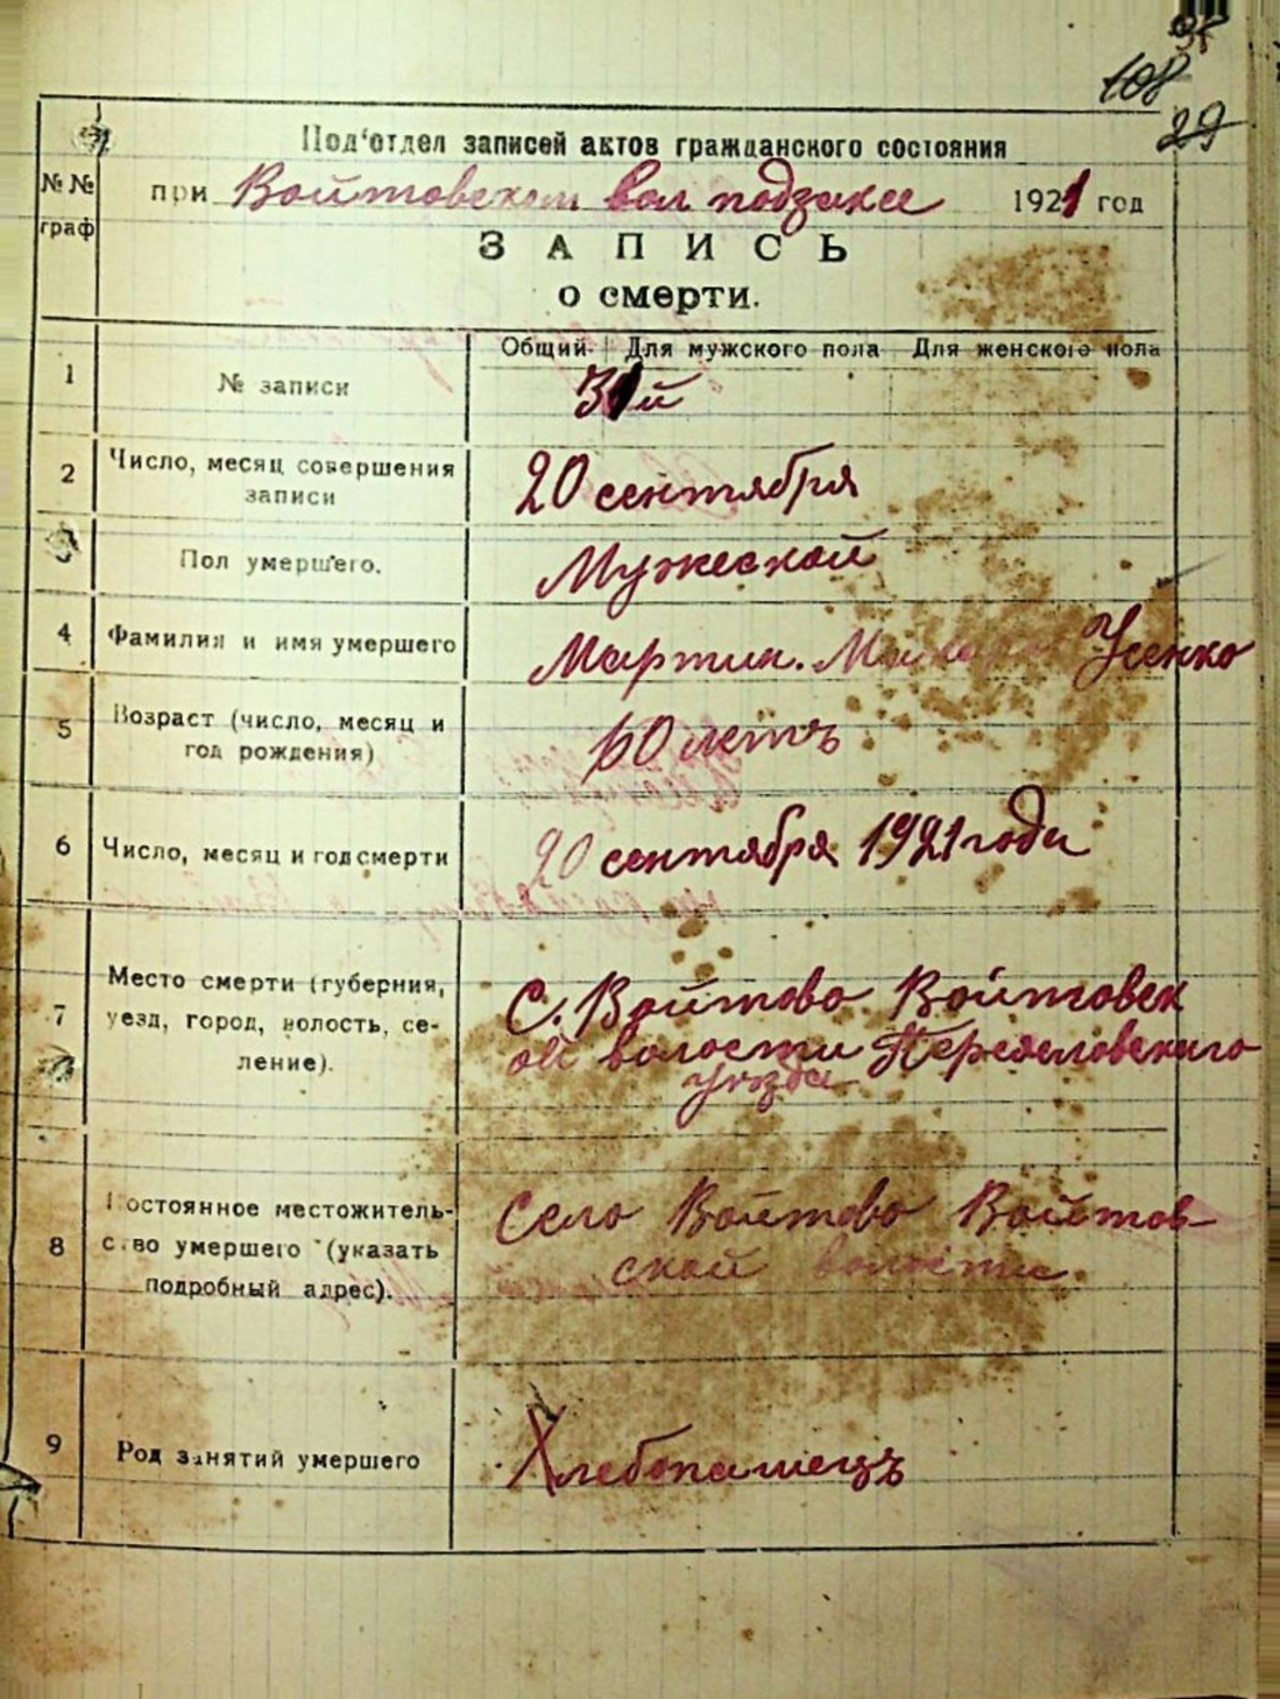 108
29
Под'отдел записей актов гражданского состояния
№№ граф
при Войтовском вол подзаксе 1921 год
ЗАПИСЬ
о смерти.
Общий Для мужского пола Для женского пола
1 № записи
31й
2 Число, месяц совершения
записи
20 сентября
Пол умершего.
Мужеской
4 Фамилия и имя умершего
Мартин. Усенко
5 Возраст (число, месяц и
год рождения)
60 летъ
6 Число, месяц и год смерти
20 сентября 1921 года
7 Место смерти (губерния,
уезд, город, волость, се-
ление).
С. Войтово Войтовск
ой волости Переяславского
уѣзда
8 Постоянное местожитель-
ство умершего (указать
подробный адрес).
Село Войтово Войтов-
ской волости.
9 Род занятий умершего
Хлебопашецъ